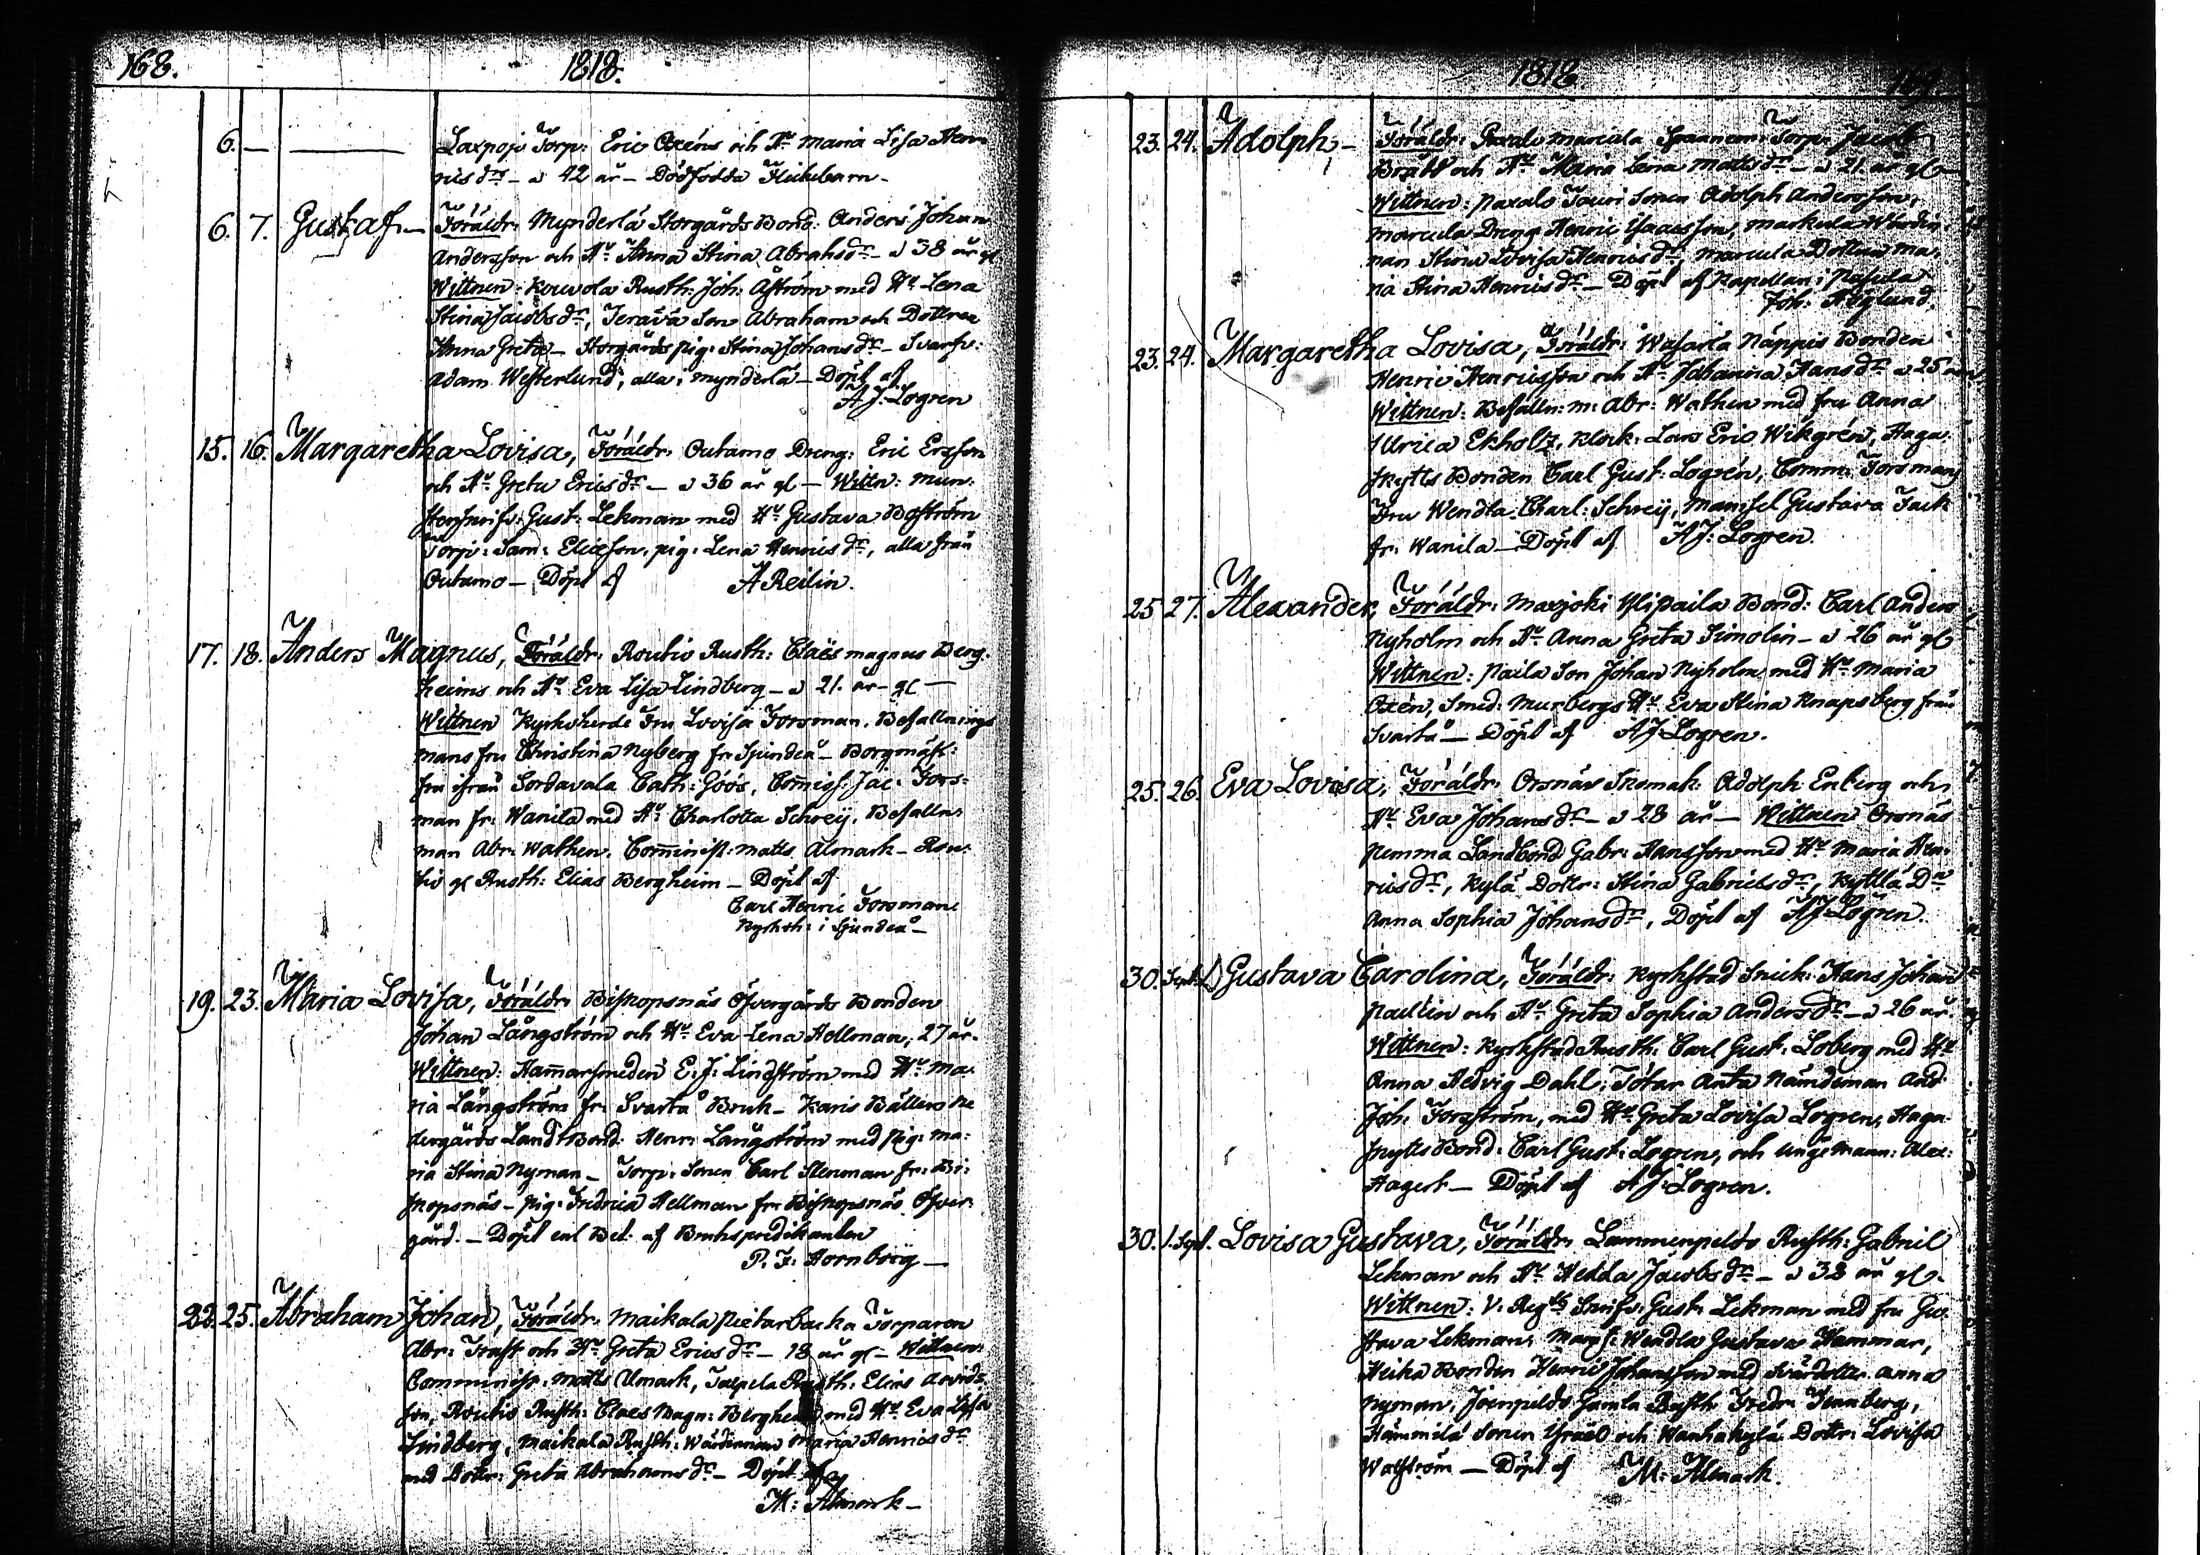 168. 1818.
6. — — Laxpojo Torp: Eric Oxéns och Hu Maria Lisa Hen-
ricsdr — 42 år — Dödfödda Flickebarn —
6. 7. Gustaf — Föräldr: Mynderlä Storgårds Bond: Anders Johan
Andersson och Hu Anna Stina Abrahsdr — 38 år gl
Wittnen: Kouvola Rusth: Joh: Åström med Hu Lena
Stina Jacobsdr, Terävä Son Abraham och Dottren
Anna Greta — Storgårds pig: Stina Johansdr — Svarfv:
Adam Westerlund, alla i Mynderlä — Döpt af
A J: Logren
15. 16. Margaretha Lovisa, Föräldr: Outamo Dreng: Eric Ersson
och Hu Greta Ericsdr — 36 år gl — Wittn: Mun-
sterskrifv: Gust: Lekman med Hu Gustava Boström
Torp: Sam: Elieson, pig: Lena Henricsdr, alla från
Outamo — Döpt af A Reilin.
17. 18. Anders Magnus, Föräldr: Routio Rusth: Claës Magnus Berg-
heims och Hu Eva Lisa Lindberg — 21 år — gl —
Wittnen Kyrkoherde Fru Lovisa Forsman, Befallnings
mans fru Christina Nyberg fr: Sjundeå — Borgmäst:
fru ifrån Sordavala Cath: Göös, Comiss: Jac: Fors-
man fr: Wanila med Hu Charlotta Schreij, Befalln:
man Abr: Wathen, Comminist: Matts Almark — Rou-
tio gl Rusth: Elias Bergheim — Döpt af
Carl Henric Forsman
Kyrkoh: i Sjundeå —
19. 23. Maria Lovisa, Föräldr: Biskopsnäs Öfvergårds Bonden
Johan Långström och Hu Eva Lena Hellman, 27 år.
Wittnen: Hamarsmeden E. J: Lindström med Hu Ma-
ria Långström fr: Svartå Bruk — Karis Bällers Ne
dergårds Landt Bond: Henr: Långström med Pig: Ma-
ria Stina Nyman — Torp: Sonen Carl Stenman fr: Bi-
skopsnäs — Pig: Fredrica Hellman fr: Biskopsnäs Öfver-
gård — Döpt enl Bet: af Brukspredikanten
P. J: Hornborg —
22. 25. Abraham Johan, Föräldr: Maikala Pietarbacka Torparen
Abr: Trast och Hu Greta Ericsdr — 18 år gl — Wittnen:
Comminist: Matts Almark, Talpela Rusth: Elias Arvids-
son, Routio Rusth: Claes Magn: Bergheim med Hu Eva Lisa
Lindberg, Maikala Rusth: Wärdinnan Maria Henricsdr
med Dottr: Greta Abrahamsdr — Döpt af
M: Almark —
1818. 169.
23. 24. Adolph — Föräldr: Marcula Torp: Jacob
Bräbb och Hu Maria Lena Mattsdr — 21 år gl —
Wittnen: Paxalo Touri Sonen Adolph Andersson,
Marcula Dreng Henric Isaacsson, Markula Wärdin-
nan Stina Lovisa Henricsdr, Marcula Dottren Ma-
ria Stina Henricsdr — Döpt af Kapellan i Pusula
Joh: Höglund.
23. 24. Margaretha Lovisa, Föräldr: Wasarla Näppis Bonden
Henric Henricsson och Hu Johanna Hansdr 25 år
Wittnen: Befalln: m: Abr: Wathen med fru Anna
Ulrica Ekholtz, Klock: Lars Eric Wikgrén, Haga-
skytts Bonden Carl Gust: Logrén, Comm: Forsmans
Fru Wendla Charl: Schreij, Mamsel Gustava Tack
fr: Wanila — Döpt af A J: Logren.
25 27. Alexander, Föräldr: Maxjoki Ylipaila Bond: Carl Anders
Nyholm och Hu Anna Greta Simolin — 26 år gl
Wittnen: Paila Son Johan Nyholm med Hu Maria
Oxén, Smed: Murbergs Hu Eva Stina Knapsberg från
Svartå — Döpt af A J: Logren.
25. 26. Eva Lovisa, Föräldr: Orsnäs Skomak: Adolph Enberg och
Hu Eva Johansdr — 28 år — Wittnen Orsnäs
Pemma Landbond Gabr: Hansson med Hu Maria Hen-
ricsdr, Kylä Dottr: Stina Gabrielsdr, Kyttlä Dr
Anna Sophia Johansdr, Döpt af A J: Logren.
30. Sept. 1 Gustava Carolina, Föräldr: Kyrkstad Snick: Hans Johan
Paulin och Hu Greta Sophia Andersdr — 26 år.
Wittnen: Kyrkstad Rusth: Carl Gust: Loberg med Hu
Anna Hedvig Dahl, Tötar Anta Nämdeman And:
Joh: Forsström, med Hu Greta Lovisa Logren, Haga-
skytts Bond: Carl Gust: Logren, och Unge Mann: Alex:
Hagert — Döpt af A J: Logren.
30. 1. Sept. Lovisa Gustava, Föräldr: Lammenpeldo Rusth: Gabriel
Lekman och Hu Hedda Jacobsdr — 38 år gl —
Wittnen: V: Regts Skrifv: Gust: Lekman med fru Gu-
stava Lekman, Mams: Wendla Gustava Hammar,
Heika Bonden Henric Johansson med Svärdotter Anna
Nyman, Joenpeldo Gamla Rusth: Fredr: Tennberg,
Hämmilä Sonen Israël och Wanhakylä Dottr: Lovisa
Walström — Döpt af M: Almark.